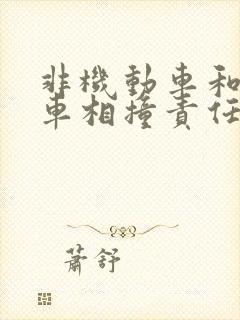 非機動車和
車相撞責任
蕭舒